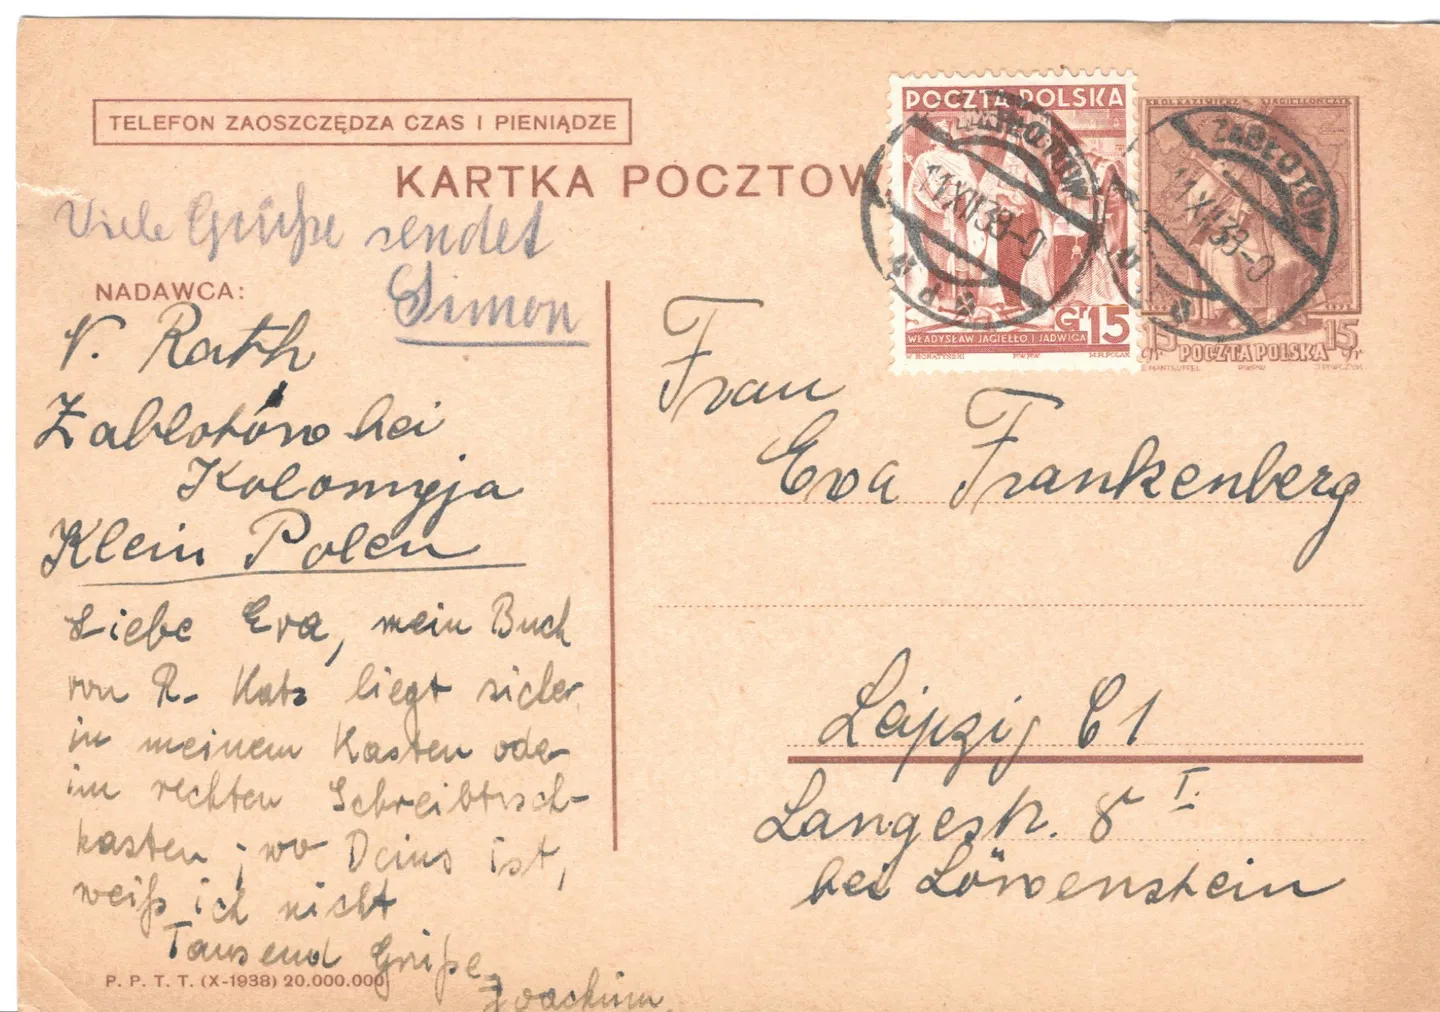 TELEFON ZAOSZCZĘDZA CZAS I PIENIĄDZE
KARTKA POCZTOW
Viele Grüße sendet
Simon
NADAWCA:
V. Rath
Zabłotów bei
Kolomyja
Klein Polen
Liebe Eva, mein Buch
von R. Katz liegt sicher
in meinem Kasten oder
im rechten Schreibtisch-
kasten; wo Deins ist,
weiß ich nicht
Tausend Grüße
Joachim
P. P. T. T. (X-1938) 20.000.000
POCZTA POLSKA
Gr 15
WŁADYSŁAW JAGIEŁŁO I JADWIGA
W. BORATYŃSKI PWPW M.R. POLAK
ZABŁOTÓW
11 XII 38-0
KRÓL KAZIMIERZ JAGIELLOŃCZYK
ZABŁOTÓW
11 XII 38-0
15 gr POCZTA POLSKA 15 gr
Frau
Eva Frankenberg
Leipzig C1
Langestr. 8 I.
bei Löwenstein